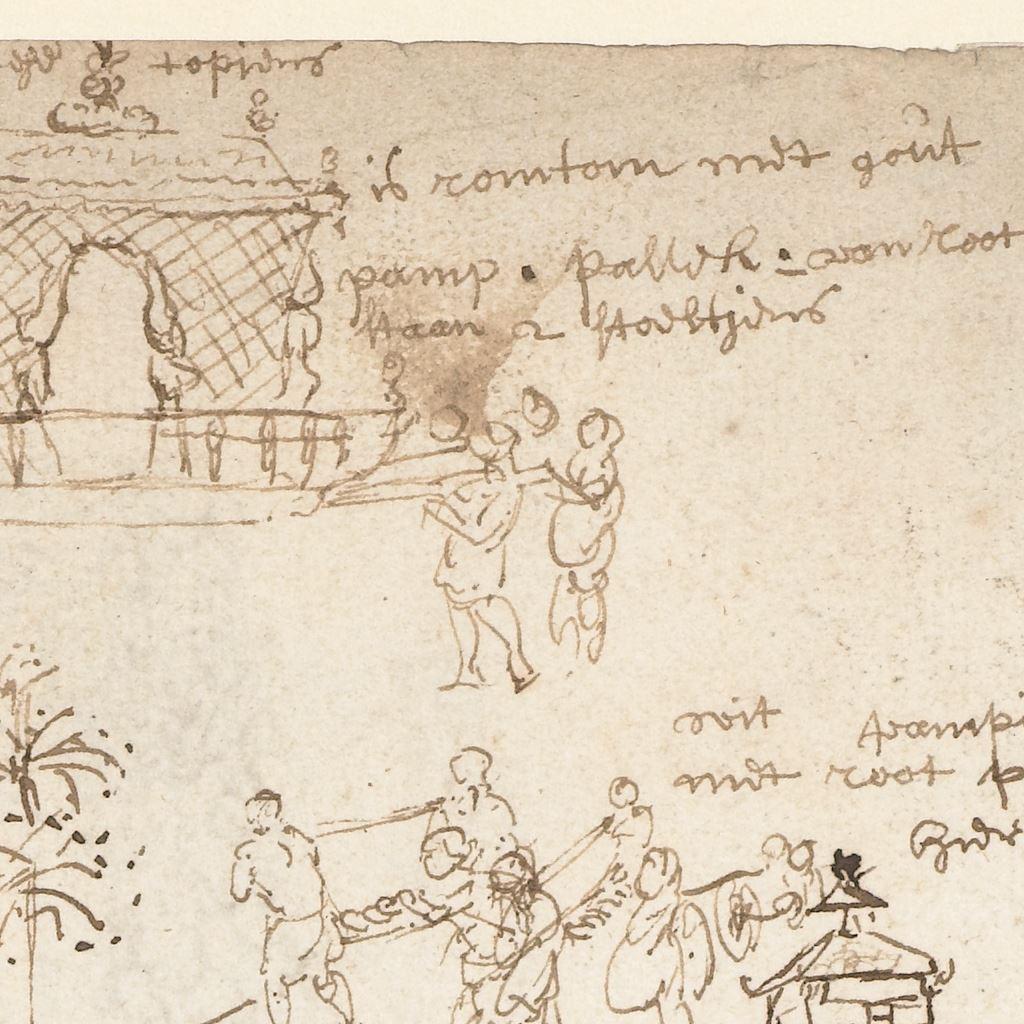 topiens
is romtom met gout
pamp . pallek . van root
staan 2 stedtiens
wit
met root